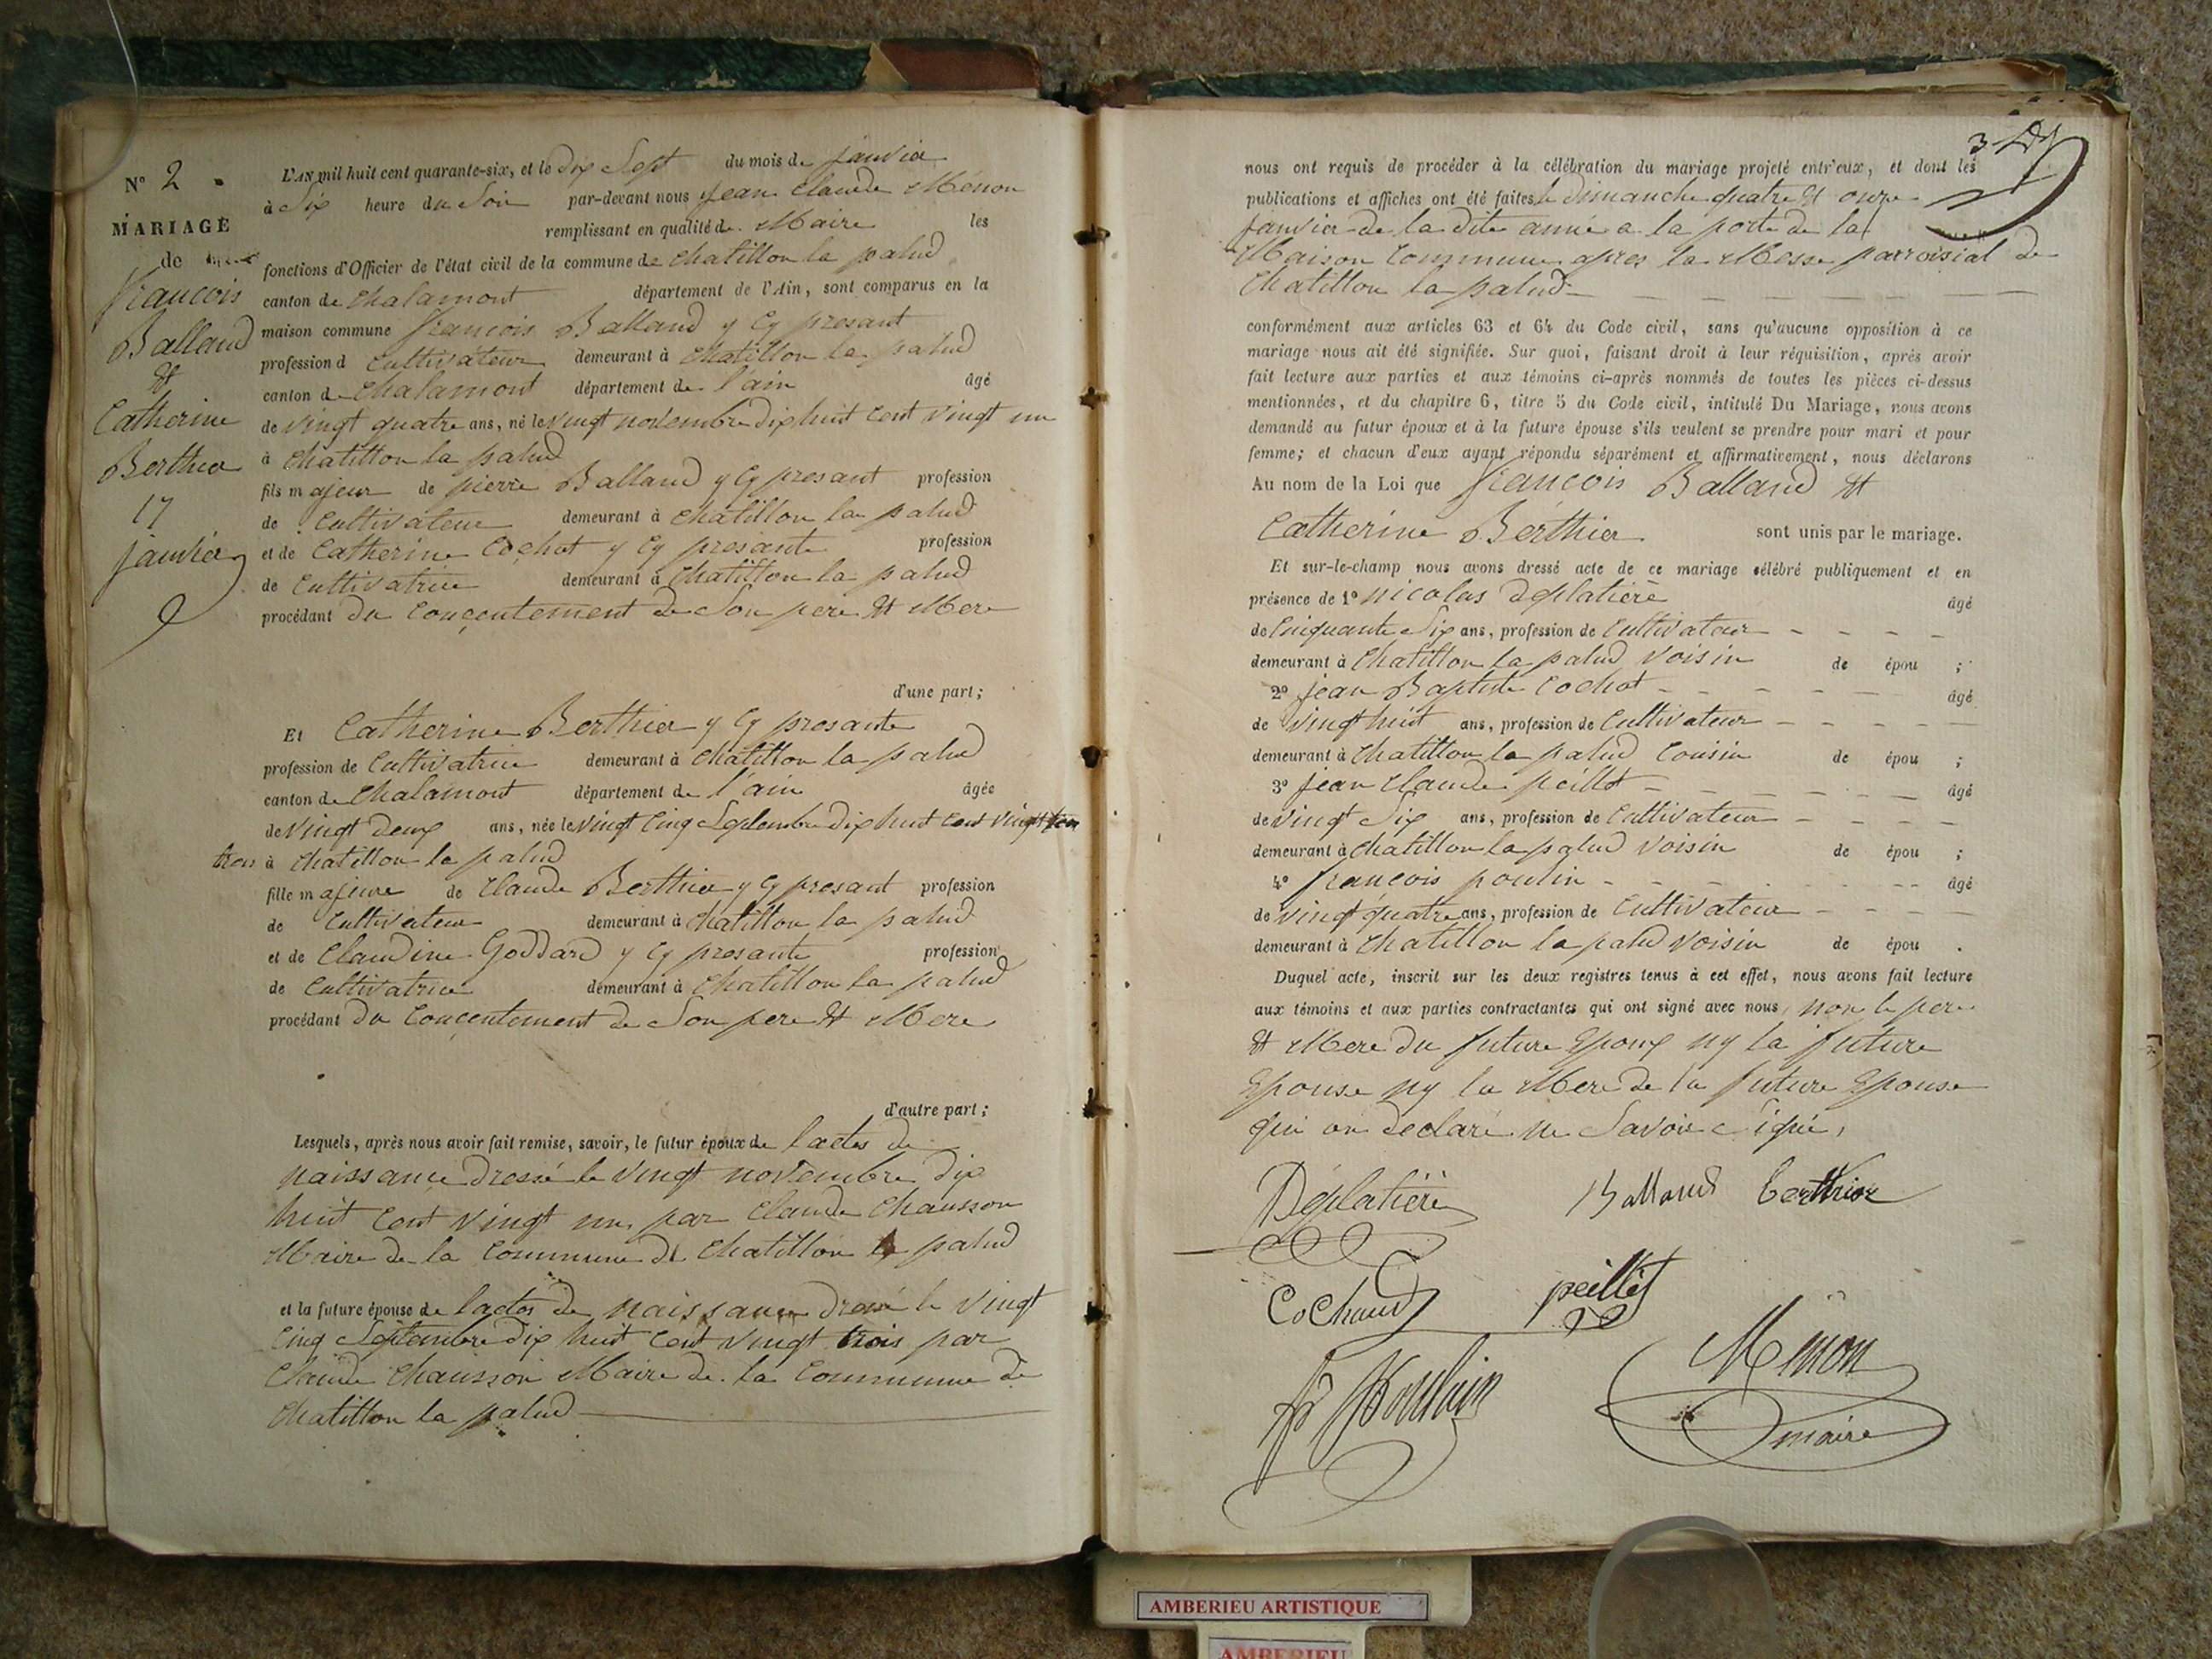 N° 2
MARIAGE
de
francois
Balland
et
Catherine
Berthier
17
janvier
L'AN mil huit cent quarante-six, et le dix Sept du mois de janvier
à Six heure du Soir par-devant nous jean claude Ménon
remplissant en qualité de Maire les
fonctions d'Officier de l'état civil de la commune de chatillon la palud
canton de chalamont département de l'Ain, sont comparus en la
maison commune francois Balland y Cy presant
profession d Cultivateur demeurant à chatillon la palud
canton de chalamont département de l'ain âgé
de vingt quatre ans, né le vingt novembre dix huit cent vingt un
à chatillon la palud
fils majeur de pierre Balland y Cy presant profession
de Cultivateur demeurant à chatillon la palud
et de Catherine Cochot y Cy presante profession
de Cultivatrice demeurant à chatillon la palud
procédant du Conçentement de Son pere et Mere
d'une part;
Et Catherine Berthier y Cy presante
profession de Cultivatrice demeurant à chatillon la palud
canton de chalamont département de l'ain âgée
de vingt deux ans, née le vingt Cinq Septembre dix huit cent vingt
trois à chatillon la palud
fille majeure de claude Berthier y Cy presant profession
de Cultivateur demeurant à chatillon la palud
et de Claudine Goddard y Cy presante profession
de Cultivatrice demeurant à chatillon la palud
procédant du Conçentement de Son pere et Mere
d'autre part;
Lesquels, après nous avoir fait remise, savoir, le futur époux de lactes de
naissance dressé le vingt novembre dix
huit cent vingt un, par claude chausson
Maire de la Commune de chatillon la palud
et la future épouse de lactes de naissance dressé le vingt
Cinq Septembre dix huit cent vingt trois par
Claude chausson Maire de la Commune de
chatillon la palud
3
nous ont requis de procéder à la célébration du mariage projeté entr'eux, et dont les
publications et affiches ont été faites le dimanche quatre et onze
janvier de la dite année a la porte de la
Maison Commune apres la Messe parroisial de
chatillon la palud
conformément aux articles 63 et 64 du Code civil, sans qu'aucune opposition à ce
mariage nous ait été signifiée. Sur quoi, faisant droit à leur réquisition, après avoir
fait lecture aux parties et aux témoins ci-après nommés de toutes les pièces ci-dessus
mentionnées, et du chapitre 6, titre 5 du Code civil, intitulé Du Mariage, nous avons
demandé au futur époux et à la future épouse s'ils veulent se prendre pour mari et pour
femme; et chacun d'eux ayant répondu séparément et affirmativement, nous déclarons
Au nom de la Loi que francois Balland et
Catherine Berthier sont unis par le mariage.
Et sur-le-champ nous avons dressé acte de ce mariage célébré publiquement et en
présence de 1° nicolas deplatière âgé
de Cinquante Six ans, profession de Cultivateur
demeurant à chatillon la palud voisin de épou ;
2° jean Baptiste Cochot âgé
de vingt huit ans, profession de Cultivateur
demeurant à chatillon la palud Cousin de épou ;
3° jean claude peillot âgé
de vingt Six ans, profession de Cultivateur
demeurant à chatillon la palud voisin de épou ;
4° francois poulin âgé
de vingt quatre ans, profession de Cultivateur
demeurant à chatillon la palud voisin de épou .
Duquel acte, inscrit sur les deux registres tenus à cet effet, nous avons fait lecture
aux témoins et aux parties contractantes qui ont signé avec nous, non le pere
et Mere du future Epoux ny la future
Epouse ny la Mere de la future Epouse
qui on declaré ne Savoir Signé,
Déplatière Balland berthier
CoChaud peillot
Menon
maire
AMBERIEU ARTISTIQUE
AMBERIEU